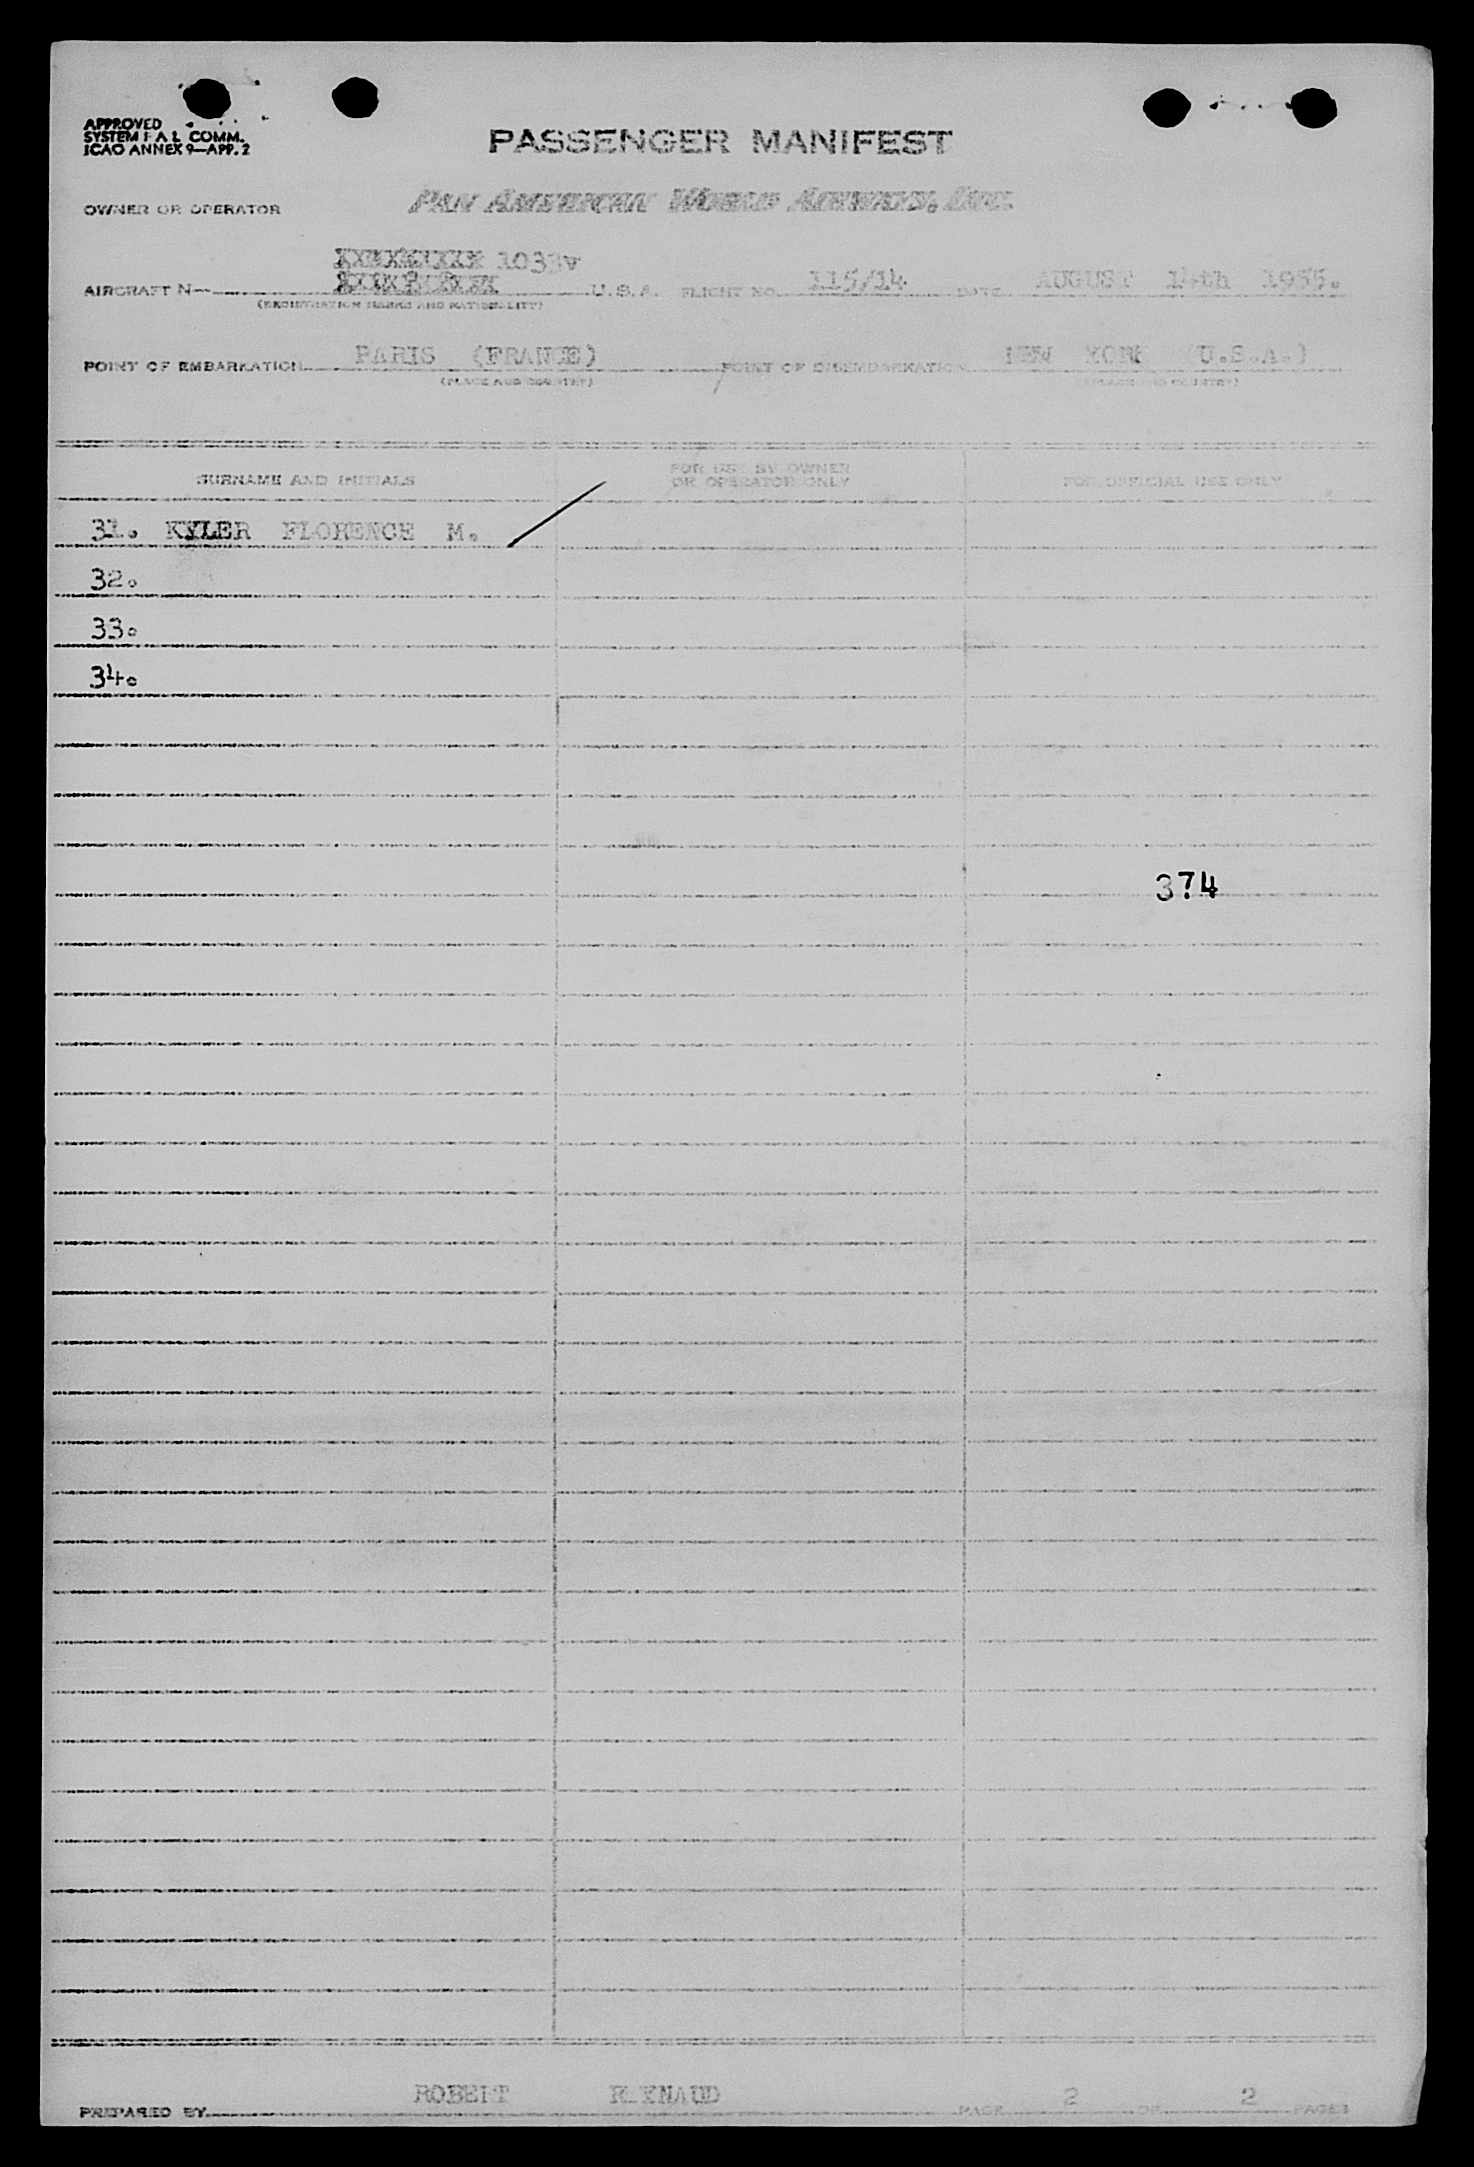 APPROVED
SYSTEM F A L COMM.
ICAO ANNEX 9—APP. 2
PASSENGER MANIFEST
OWNER OR OPERATOR
PAN AMERICAN WORLD AIRWAYS, INC.
1033V
AIRCRAFT N— U. S. A. FLIGHT NO. 115/14 DATE AUGUST 14th 1955.
(REGISTRATION MARKS AND NATIONALITY)
POINT OF EMBARKATION PARIS (FRANCE) POINT OF DISEMBARKATION NEW YORK (U.S.A.)
(PLACE AND COUNTRY) (PLACE AND COUNTRY)
SURNAME AND INITIALS
FOR USE BY OWNER
OR OPERATOR ONLY
FOR OFFICIAL USE ONLY
31. KYLER FLORENCE M.
32.
33.
34.
374
PREPARED BY ROBERT PAGE 2 OF 2 PAGES